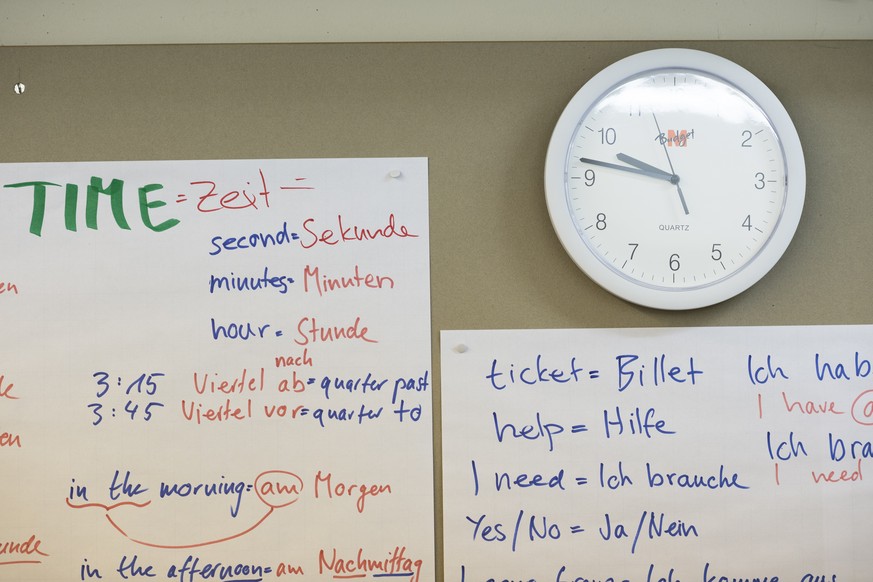 TIME = Zeit =
second = Sekunde
minutes = Minuten
hour = Stunde
nach
3:15 Viertel ab = quarter past
3:45 Viertel vor = quarter to
in the morning = am Morgen
in the afternoon = am Nachmittag
en
en
unde
11
10
2
9
3
8
4
7
5
6
M
Budget
QUARTZ
ticket = Billet
help = Hilfe
I need = Ich brauche
Yes/No = Ja/Nein
Ich hab
I have
Ich bra
I need